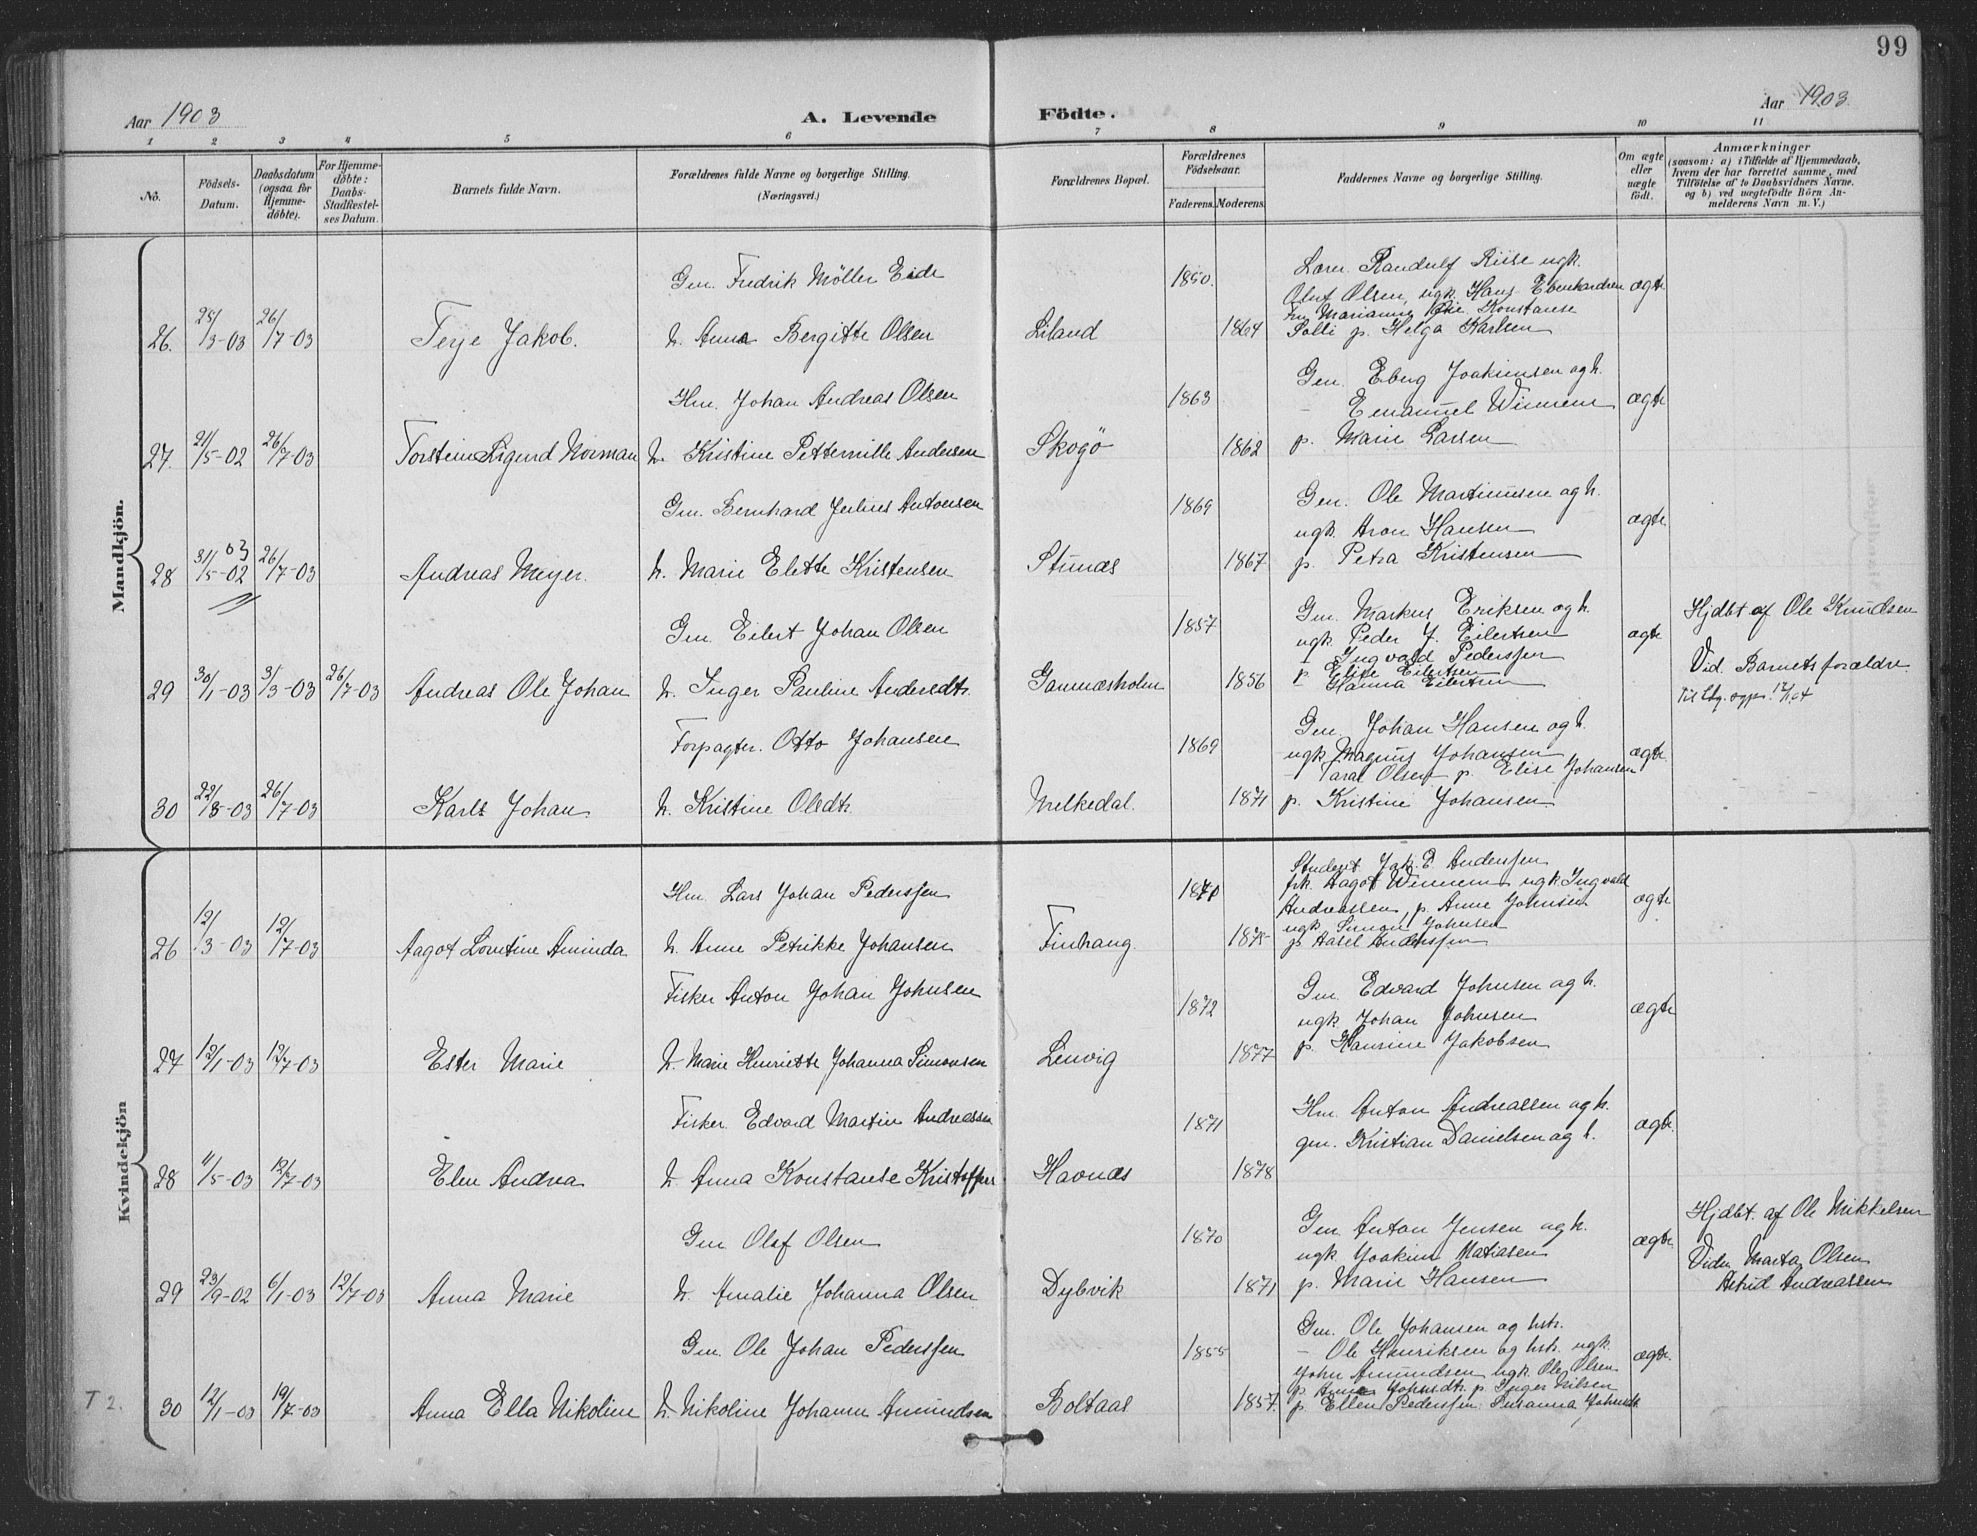 99
Aar 1903
A. Levende
Födte.
Aar 1903.
1 2 3 4 5 6 7 8 9 10 11
No.
Födsels-
Datum.
Daabsdatum
(ogsaa for
Hjemme-
döbte).
For Hjemme-
döbte:
Daabs-
Stadfæstel-
ses Datum.
Barnets fulde Navn.
Forældrenes fulde Navne og borgerlige Stilling.
(Næringsvei.)
Forældrenes Bopæl.
Forældrenes
Födselsaar.
Faderens. Moderens.
Faddernes Navne og borgerlige Stilling.
Om ægte
eller
uægte
födt.
Anmærkninger
(saasom: a) i Tilfælde af Hjemmedaab,
hvem der har forrettet samme, med
Tilföielse af to Daabsvidners Navne,
og b) ved uægtefödte Börn An-
melderens Navn m. V.)
Mandkjön.
26. 25/3-03 26/7-03 Terje Jakob.
Gm. Fredrik Möller Eide
h. Anna Bergitte Olsen
Liland
1850.
1864
Lærer Randulf Riise ugk.
Olut Olsen, ugk. Hans Ebenhardsen
Fru Marianne Konstanse
Solli p. Helga Karlsen
ægte
27. 21/5-02 26/7-03 Torstein Sigurd Norman
Hm. Johan Andreas Olsen
h. Kristine Petternille Andersen
Skogö
1863
1862
Gm. Eberg Joakimsen og h.
- Emanuel Winnem
p. Marie Larsen
ægte
28 31/5-02 03 26/7-03 Andreas Meyer.
Gm. Bernhard Julius Antonsen
h. Marie Elette Kristensen
Stunæs
1869
1867
Gm. Ole Martinusen og h.
ugk. Aron Hansen
p. Petra Kristensen
ægte
29 30/1-03 3/3-03 26/7-03 Andreas Ole Johan
Gm. Eilert Johan Olsen
h. Inger Pauline Andersdtr.
Gammesholm
1857
1856
Gm. Markus Eriksen og h.
ugk Peder J. Eilertsen
- Ingvald Pederssen
p. Elise Eilertsen
- Hanna Eilertsen
ægte
Hjdbt af Ole Knudsen
Vid. Barnets forældre
30 22/8-03 26/7-03 Karl Johan
Forpagter. Otto Johansen
h. Kristine Olsdtr.
Melkedal.
1869
1871
Gm. Johan Hansen og h.
ugk Magnus Johansen
- Taral Olsen p. Elise Johansen
p. Kristine Johansen
ægte
Kvindekjön
26 12/3-03 12/7-03 Aagot Lovetine Aminda
Hm. Lars Johan Pederssen
h. Anne Petrikke Johansen
Finhaug.
1871
1875
Student Jak. E. Anderssen
frk. Aagot Winnem ugk Ingvald
Andreassen, p. Anne Johnsen
ugk Simon Johnsen
p. Aasel Anderssen
ægte
27 12/1-03 12/7-03 Ester Marie
Fisker Anton Johan Johnsen
h. Marie Henriette Johanna Simonsen
Lenvig
1872
1877
Gm. Edvard Johnsen og h.
ugk Johan Johnsen
p. Hansine Jakobsen
ægte
28 4/5-03 12/7-03 Elen Andrea
Fisker Edvard Martin Andreassen
h. Anna Konstanse Kristoffers
Havnæs
1871
1878
Hm. Anton Andreassen og h.
gm. Kristian Danielsen og h.
ægte.
29 23/9-02 6/1-03 12/7-03 Anna Marie
Gm Olaf Olsen
h. Amalie Johanna Olsen
Dybvik
1870
1871
Gm. Anton Jensen og h.
ugk Joakim Matiasen
p. Marie Hansen
ægte.
Hjdbt. af Ole Mikkelsen
Vidn Marta Olsen
Astrid Andreassen
T 2. 30 12/1-03 19/7-03 Anna Ella Nikoline
Gm. Ole Johan Pederssen
h. Nikoline Johanna Amundsen
Boltaas
1855
1857.
Gm. Ole Johansen og hstr.
- Ole Henriksen og hstr. ugk.
John Amundsen ugk Ole Olsen
p. Anna Johnsdtr. p. Inger Nilsen
p. Ellen Pederssen. Susanna Johnsdt.
ægte.